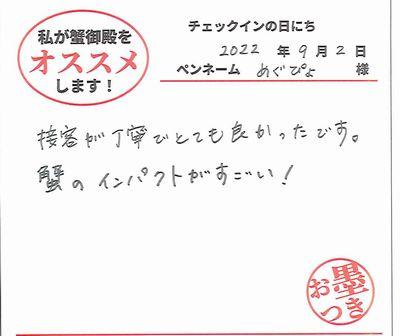 私が蟹御殿を
オススメ
します！
チェックインの日にち
2022 年 9 月 2 日
ペンネーム めぐぴょ 様
接客が丁寧でとても良かったです。
蟹のインパクトがすごい！
お墨つき